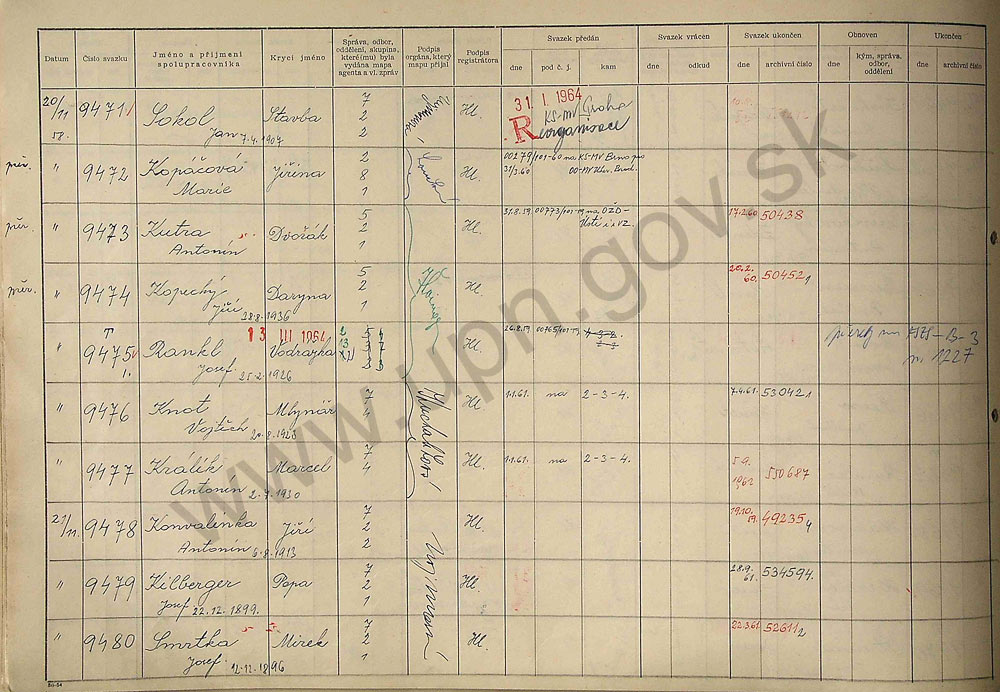 Datum Číslo svazku Jméno a příjmení spolupracovníka Krycí jméno Správa, odbor, oddělení, skupina, které(mu) byla vydána mapa agenta a vl. zpráv Podpis orgána, který mapu přijal Podpis registrátora Svazek předán Svazek vrácen Svazek ukončen Obnoven Ukončen
dne pod č. j. kam dne odkud dne archivní číslo dne kým, správa, odbor, oddělení dne archivní číslo
20/11 58. 9471 Sokol Jan 7.4.1904 Stavba 7 2 2 Hl. 31. I. 1964 KS-MV Praha Reorganisace
" 9472 Kopáčová Marie Jiřina 2 8 1 Hl. 00279/101-60 na KS-MV Brno pro 31/3.60
" 9473 Kutra Antonín Dvořák 5 2 1 Hl. 31.8.59. 00773/101-59 na OŽD- 17.2.60 50438
" 9474 Kopecký Jiří 28.8.1936 Daryna 5 2 1 Hl. 20.2. 60. 504521
" 9475 Rankl Josef 25.2.1926 13 III 1964 Vodrazka Hl. 26.8.59 00765/101-59
" 9476 Knot Vojtěch 20.8.1923 Mlynář 7 4 Hl 1.1.61. na 2-3-4. 7.4.61. 530421
" 9477 Králík Antonín 2.7.1930 Marcel 7 4 Hl. 1.1.61. na 2-3-4. 5.9. 1962 550687
21/11. 9478 Konvalinka Antonín 6.8.1913 Jiří 7 2 2 Hl. 19.10. 59. 492354
" 9479 Kilberger Josef 22.12.1899. Papa 7 2 1 Hl. 28.9. 61. 534594.
" 9480 Smrtka Josef 12.12.1896 Mirek 7 2 1 Hl. 22.3.61 526112
www.upn.gov.sk